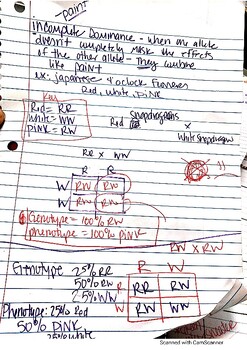 Paint
incomplete Dominance - when one allele
doesn't completely mask the effects
of the other allele - They combine
like paint
ex: Japanese 4 o'clock Flowers
Red, white, Pink
Key
Red = RR
White = WW
Pink = RW
Red Snapdragons
x
White Snapdragon
RR x WW
R R
W RW RW
W RW RW
Genotype = 100% RW
phenotype = 100% Pink
RW x RW
R W
Genotype 25% RR
50% RW
25% WW
R RR RW
W RW WW
Phenotype: 25% Red
50% Pink
25% white
Scanned with CamScanner